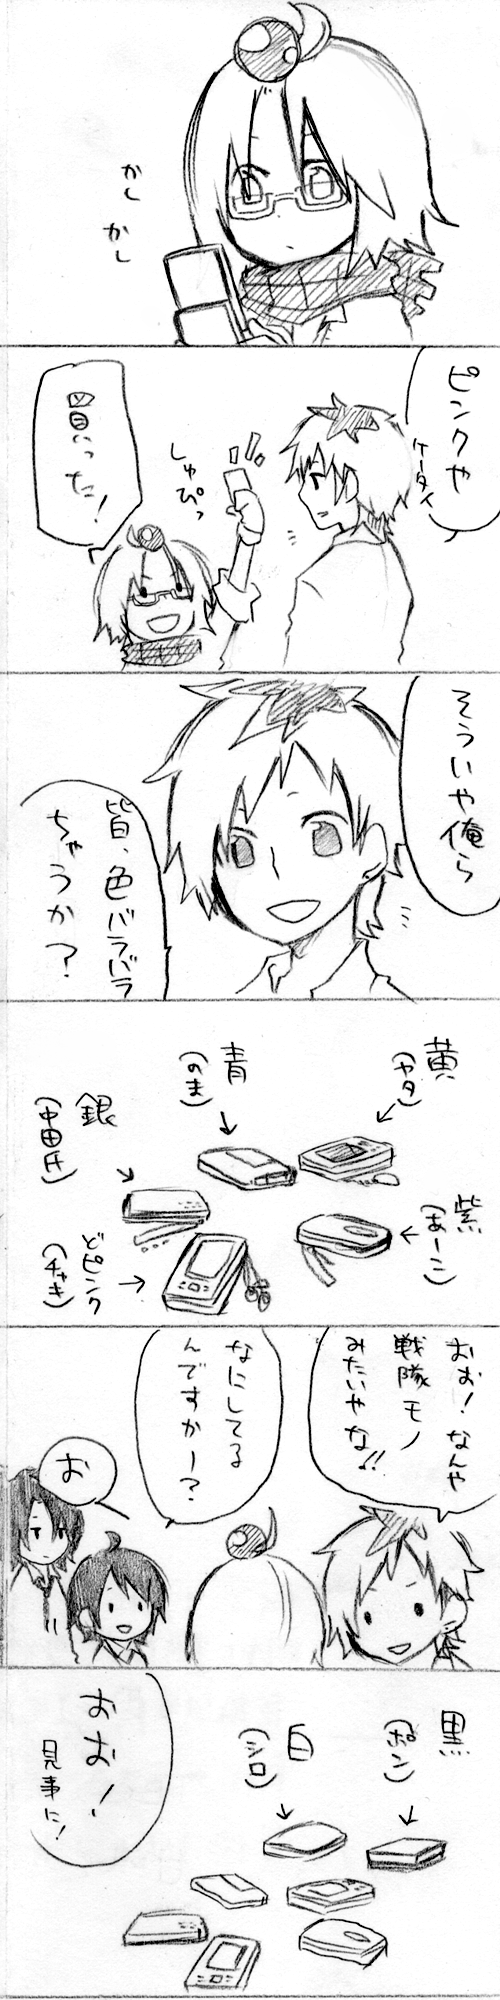 かし
かし
ピンクや
ケータイ
しゅぴっ
買った!
そういや俺ら
皆、色バラバラ
ちゃうか?
黄
(ヤタ)
青
(のま)
銀
(中田氏)
紫
(あーこ)
どピンク
(チャキ)
おお!なんや
戦隊モノ
みたいやな!!
なにしてる
んですかー?
お
黒
(ポン)
白
(シロ)
おお!
見事に!